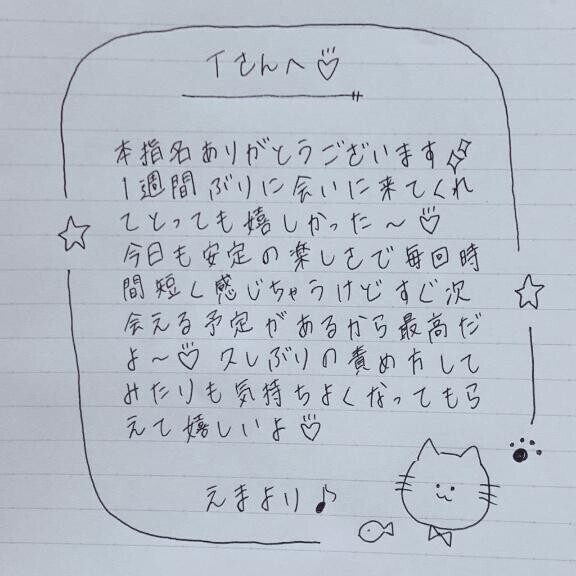 Tさんへ♡
本指名ありがとうございます✨
1週間ぶりに会いに来てくれ
てとっても嬉しかった〜♡
今日も安定の楽しさで毎回時
間短く感じちゃうけどすぐ次
会える予定があるから最高だ
よ〜♡ 久しぶりの責め方して
みたりも気持ちよくなってもら
えて嬉しいよ♡
えまより♪